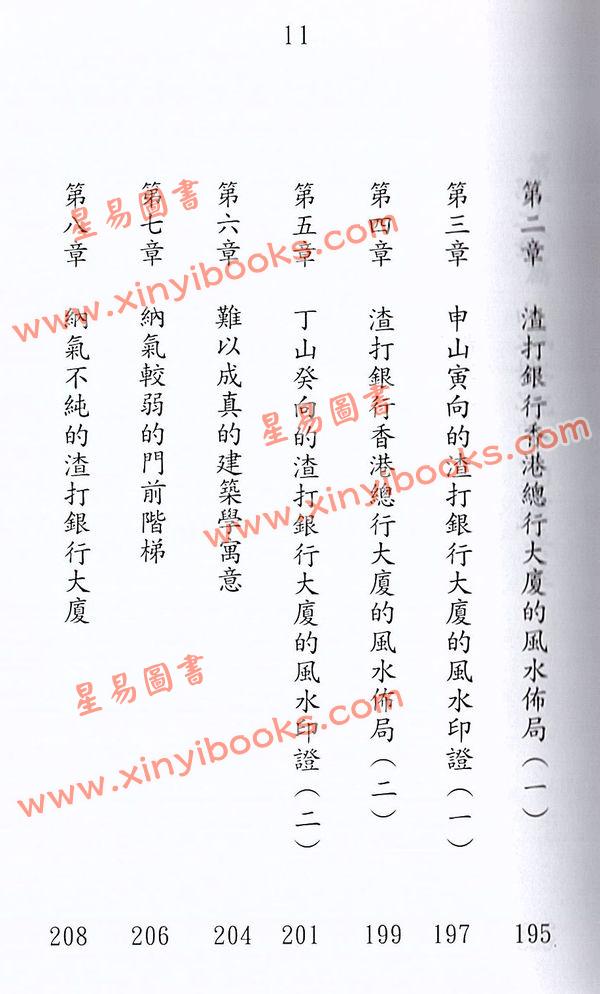 11
第二章 渣打銀行香港總行大廈的風水佈局（一） 195
第三章 申山寅向的渣打銀行大廈的風水印證（一） 197
第四章 渣打銀行香港總行大廈的風水佈局（二） 199
第五章 丁山癸向的渣打銀行大廈的風水印證（二） 201
第六章 難以成真的建築學寓意 204
第七章 納氣較弱的門前階梯 206
第八章 納氣不純的渣打銀行大廈 208
星易圖書
www.xinyibooks.com
星易圖書
www.xinyibooks.com
星易圖書
www.xinyibooks.com